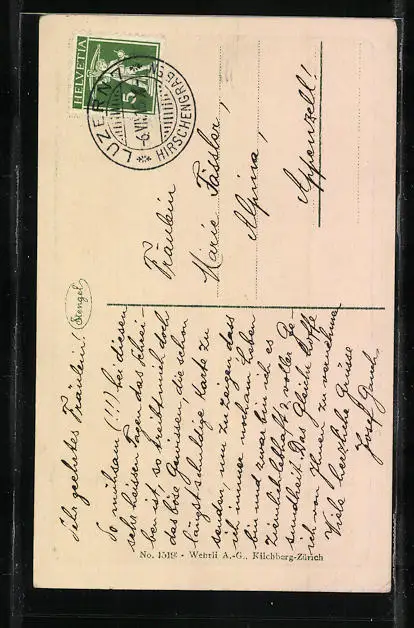 HELVETIA
5
LUZERN 7
HIRSCHENGRABEN
-6.VII.
Fräulein
Marie Fässler,
Alpina,
Appenzell!
Stengel
Sehr geehrtes Fräulein!
So mühsam (!!!) bei diesen
sehr heissen Tagen das Schrei-
ben ist, so treibt mich doch
das böse Gewissen, die schon
längst schuldige Karte zu
senden, um zu zeigen dass
ich immer noch am Leben
bin und zwar bin ich es
ziemlich lebhaft & voller Ge-
sundheit. Das Gleiche hoffe
ich von Ihnen zu vernehmen
Viele herzliche Grüsse
Josef
No. 1519 · Wehrli A.-G., Kilchberg-Zürich